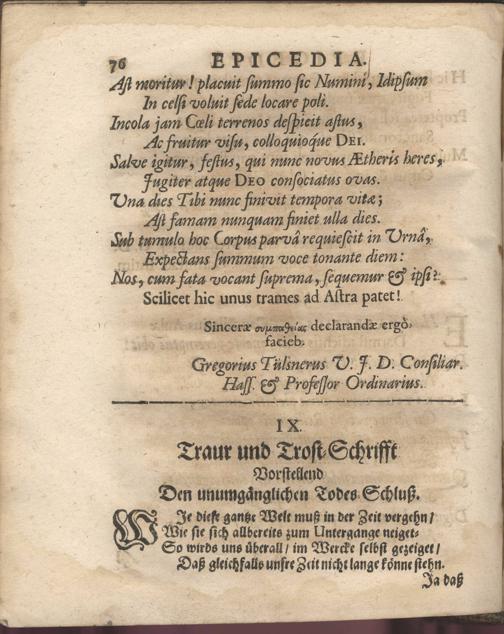 76 EPICEDIA.
Ast moritur! placuit summo sic Numini, Idipsum
In celsi voluit sede locare poli.
Incola jam Cœli terrenos despicit astus,
Ac fruitur visu, colloquioq́ue DEI.
Salve igitur, festus, qui nunc novus Ætheris heres,
Jugiter atque DEO consociatus ovas.
Una dies Tibi nunc finivit tempora vitæ;
Ast famam nunquam finiet ulla dies.
Sub tumulo hoc Corpus parvâ requiescit in Urnâ,
Expectans summum voce tonante diem:
Nos, cum fata vocant suprema, sequemur & ipsi:
Scilicet hic unus trames ad Astra patet!
Sinceræ συμπαθείας declarandæ ergò,
facieb.
Gregorius Tülsnerus U. J. D. Consiliar.
Hass. & Professor Ordinarius.
IX.
Traur und Trost-Schrifft
Vorstellend
Den unumgänglichen Todes-Schluß.
WIe diese gantze Welt muß in der Zeit vergehn/
Wie sie sich allbereits zum Untergange neiget-
So wirds uns überall/ im Wercke selbst gezeiget/
Daß gleichfalls unsre Zeit nicht lange könne stehn.
Ja daß